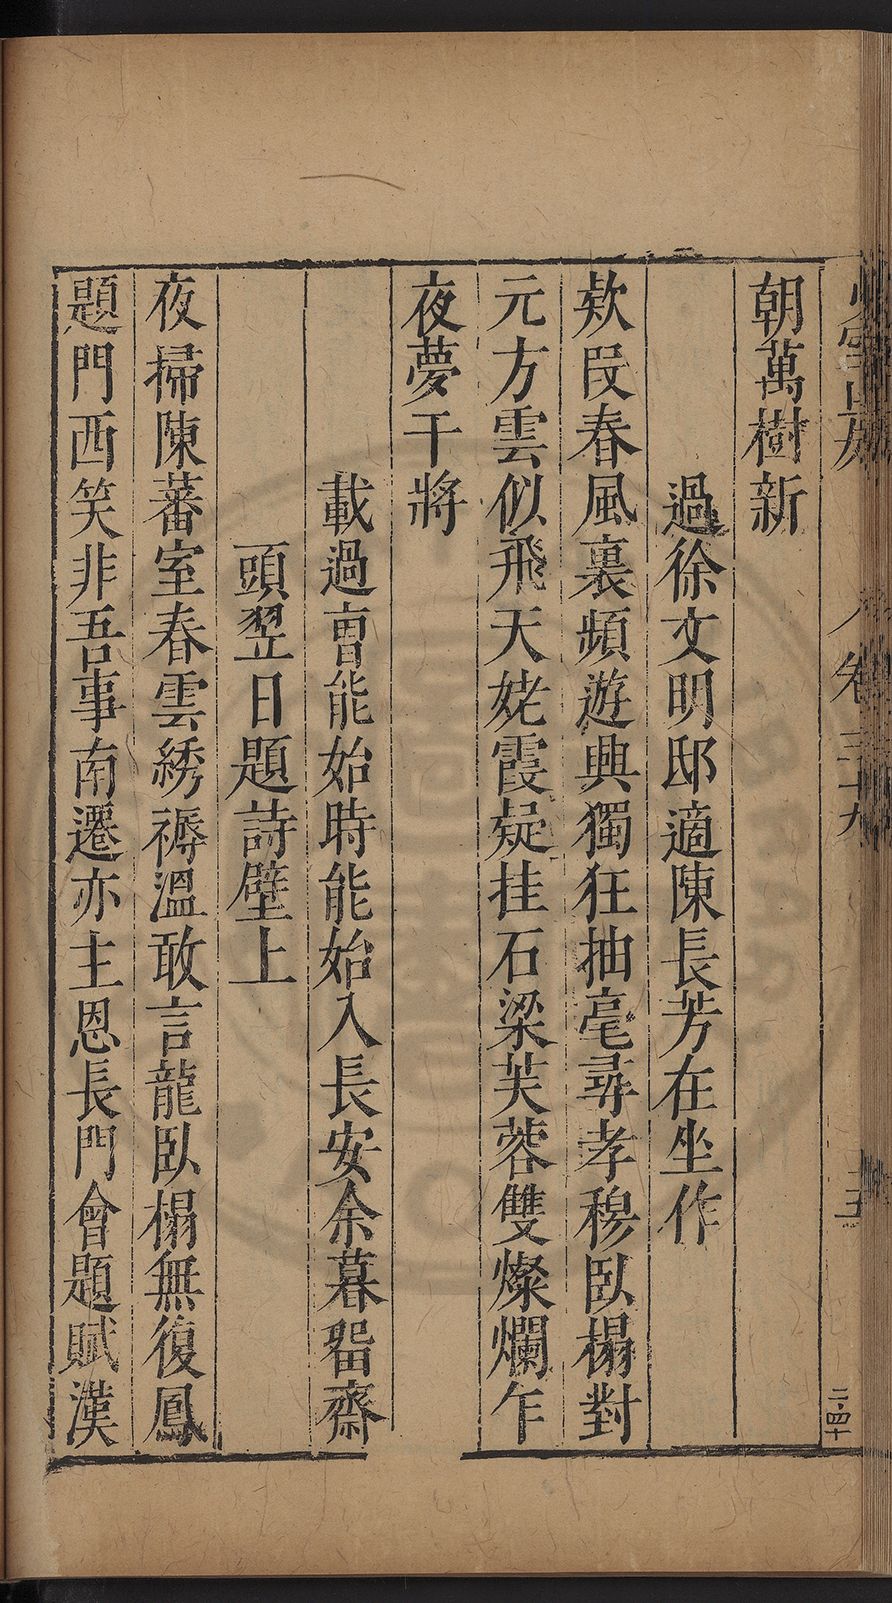 卷三十九
二·四十
朝萬樹新
過徐文明邸適陳長芳在坐作
欵段春風裏頻遊興獨狂抽毫尋孝穆臥榻對
元方雲似飛天姥霞疑挂石梁芙蓉雙燦爛乍
夜夢干將
載過曹能始時能始入長安余暮畱齋
頭翌日題詩壁上
夜掃陳蕃室春雲綉褥溫敢言龍臥榻無復鳳
題門西笑非吾事南遷亦主恩長門會題賦漢